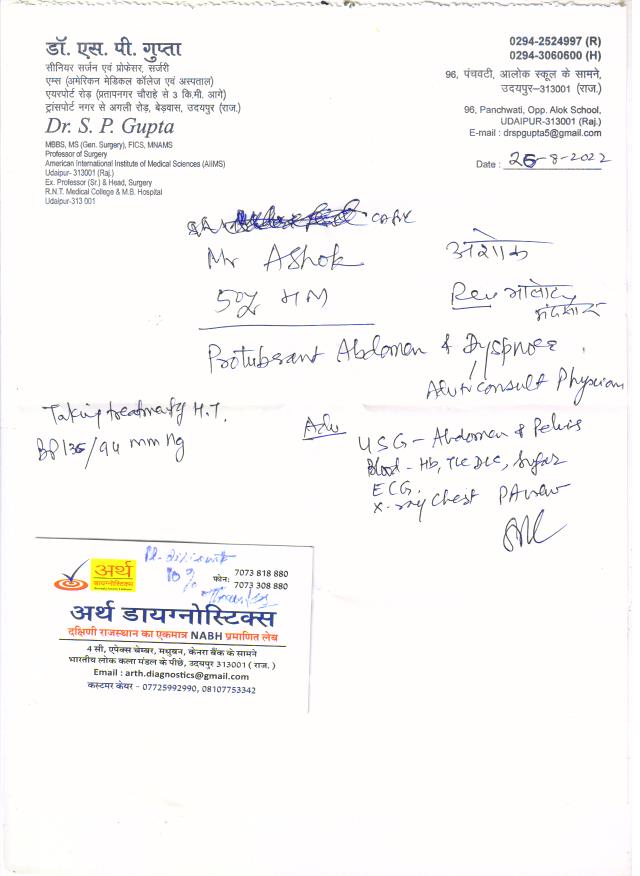 डॉ. एस. पी. गुप्ता
सीनियर सर्जन एवं प्रोफेसर, सर्जरी
एम्स (अमेरिकन मेडिकल कॉलेज एवं अस्पताल)
एयरपोर्ट रोड़ (प्रतापनगर चौराहे से 3 कि.मी. आगे)
ट्रांसपोर्ट नगर से अगली रोड़, बेड़वास, उदयपुर (राज.)
Dr. S. P. Gupta
MBBS, MS (Gen. Surgery), FICS, MNAMS
Professor of Surgery
American International Institute of Medical Sciences (AIIMS)
Udaipur- 313001 (Raj.)
Ex. Professor (Sr.) & Head, Surgery
R.N.T. Medical College & M.B. Hospital
Udaipur-313 001
0294-2524997 (R)
0294-3060600 (H)
96, पंचवटी, आलोक स्कूल के सामने,
उदयपुर-313001 (राज.)
96, Panchwati, Opp. Alok School,
UDAIPUR-313001 (Raj.)
E-mail : drspgupta5@gmail.com
Date : 26-8-2022
Mr Ashok
अशोक
50y
Protuberant Abdomen & Dyspnoea
Adv consult Physician
Taking treatment of H.T.
BP 136/94 mm Hg
Adv
USG - Abdomen & Pelvis
Blood - Hb, TLC DLC, Sugar
ECG.
X-ray Chest PA view
Pl. discount
10 %
अर्थ
डायग्नोस्टिक्स
फोन: 7073 818 880
7073 308 880
अर्थ डायग्नोस्टिक्स
दक्षिणी राजस्थान का एकमात्र NABH प्रमाणित लेब
4 सी, एपेक्स चेम्बर, मधुबन, केनरा बैंक के सामने
भारतीय लोक कला मंडल के पीछे, उदयपुर 313001 ( राज. )
Email : arth.diagnostics@gmail.com
कस्टमर केयर - 07725992990, 08107753342